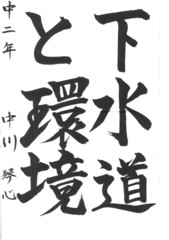 下水道
と環境
中二年 中川 琴心